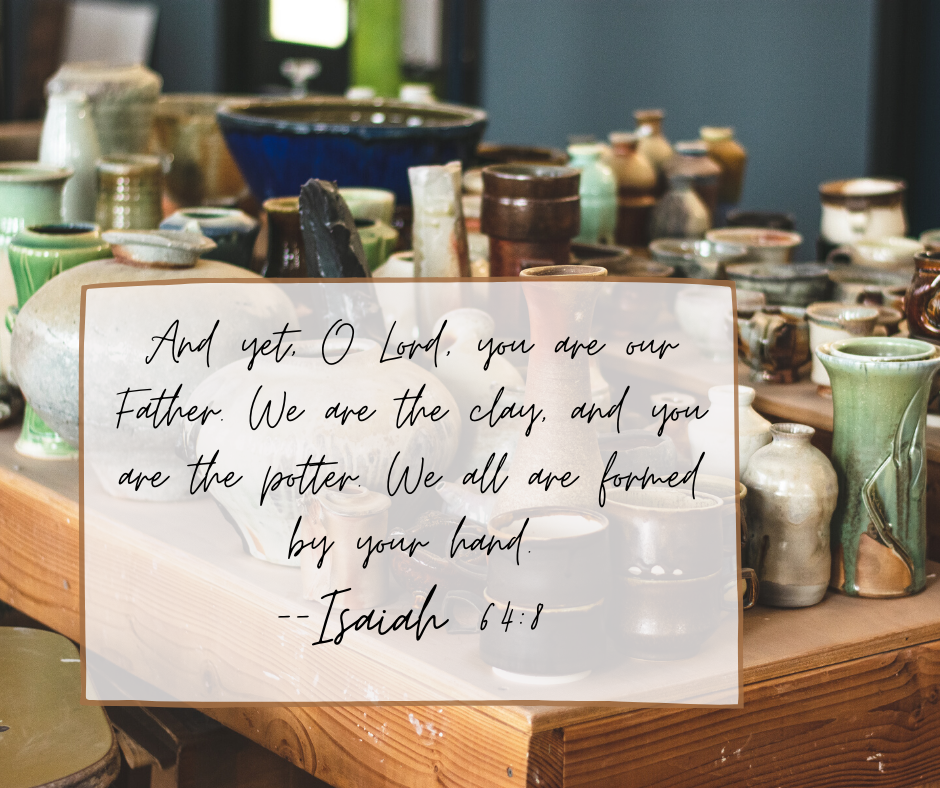 And yet, O Lord, you are our
Father. We are the clay, and you
are the potter. We all are formed
by your hand.
--Isaiah 64:8